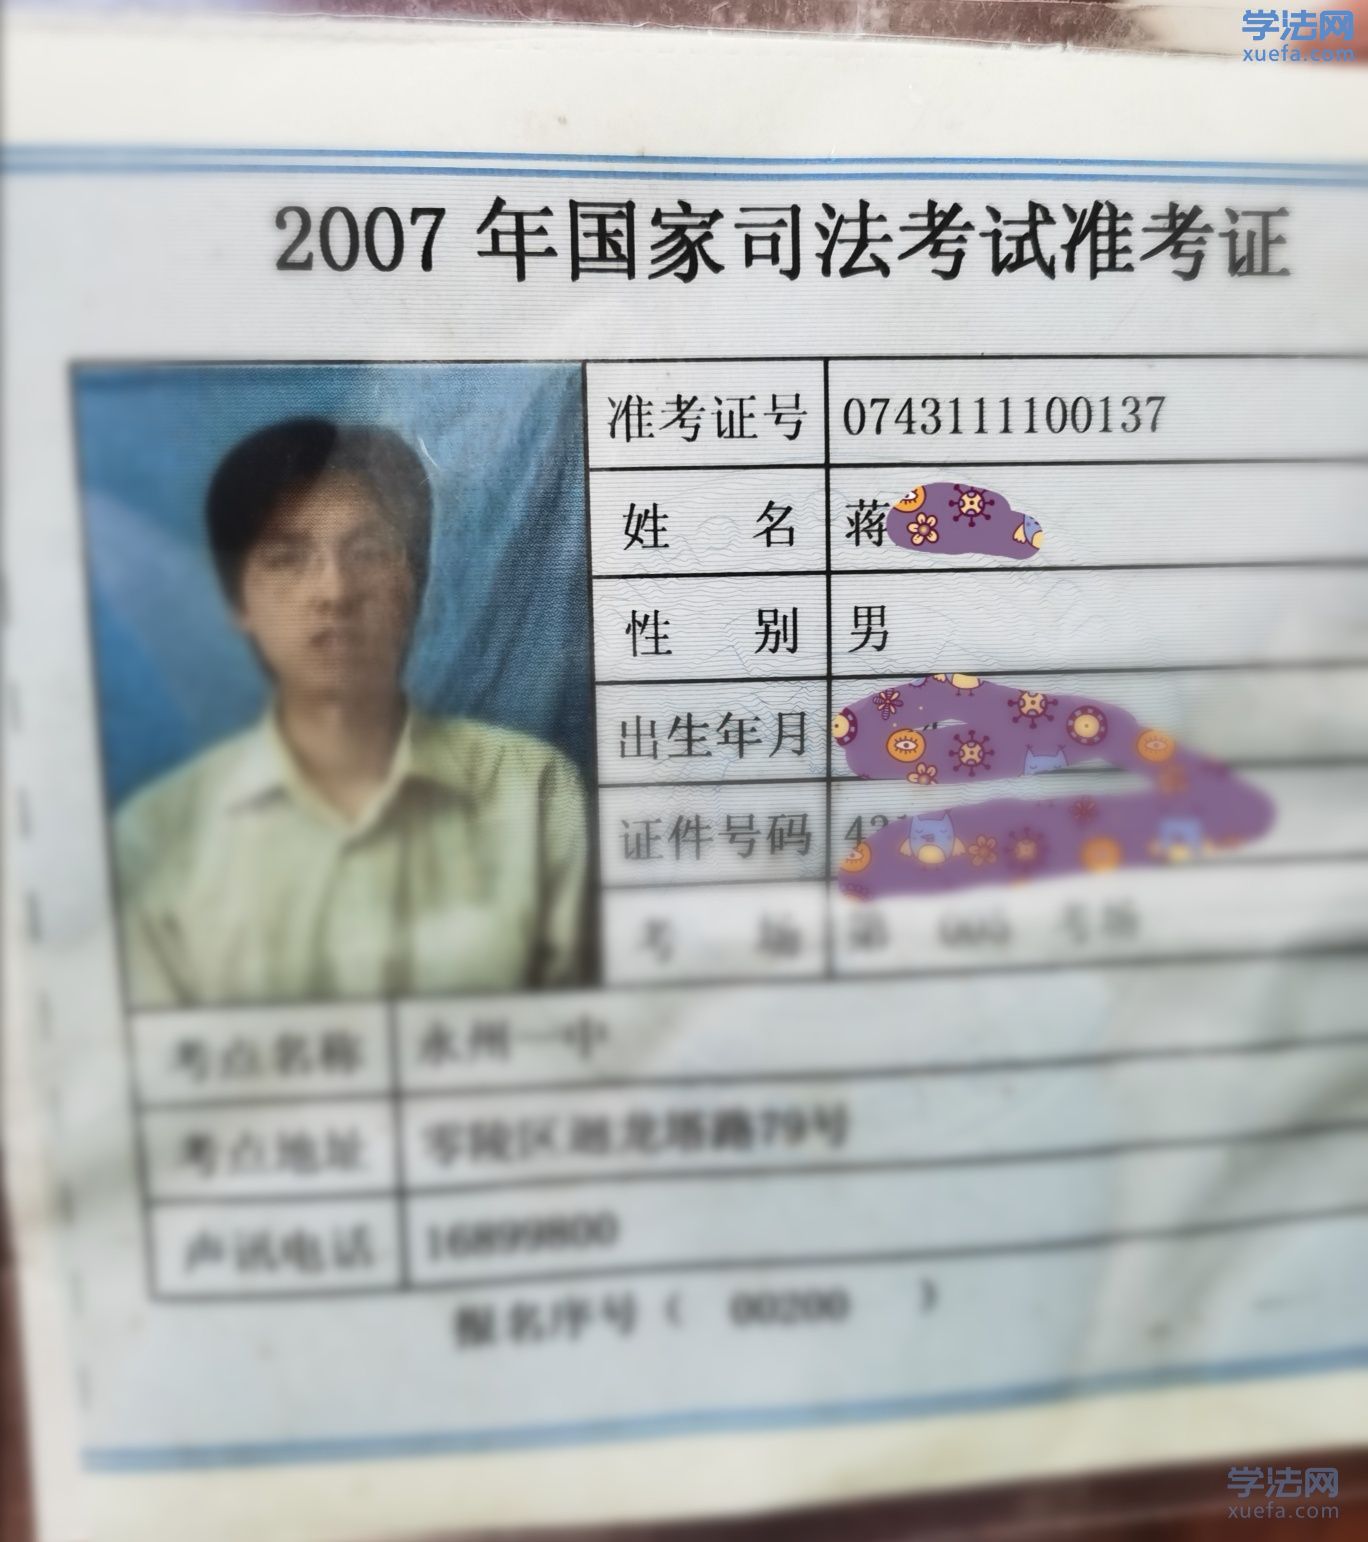 学法网
xuefa.com
2007 年国家司法考试准考证
准考证号 0743111100137
姓 名 蒋
性 别 男
出生年月
证件号码
考 场 第 考场
考点名称 永州一中
考点地址 零陵区迴龙塔路79号
声讯电话 16899800
报名序号( 00200 )
学法网
xuefa.com